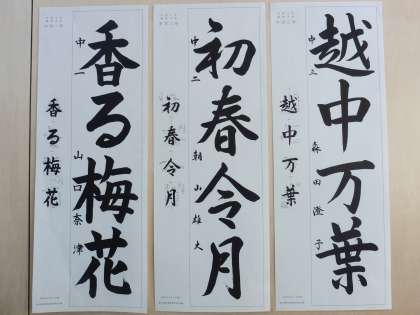 越中万葉
中三
森田澄子
越中万葉
初春令月
中二
朝山雄大
初春令月
香る梅花
中一
山口奈津
香る梅花